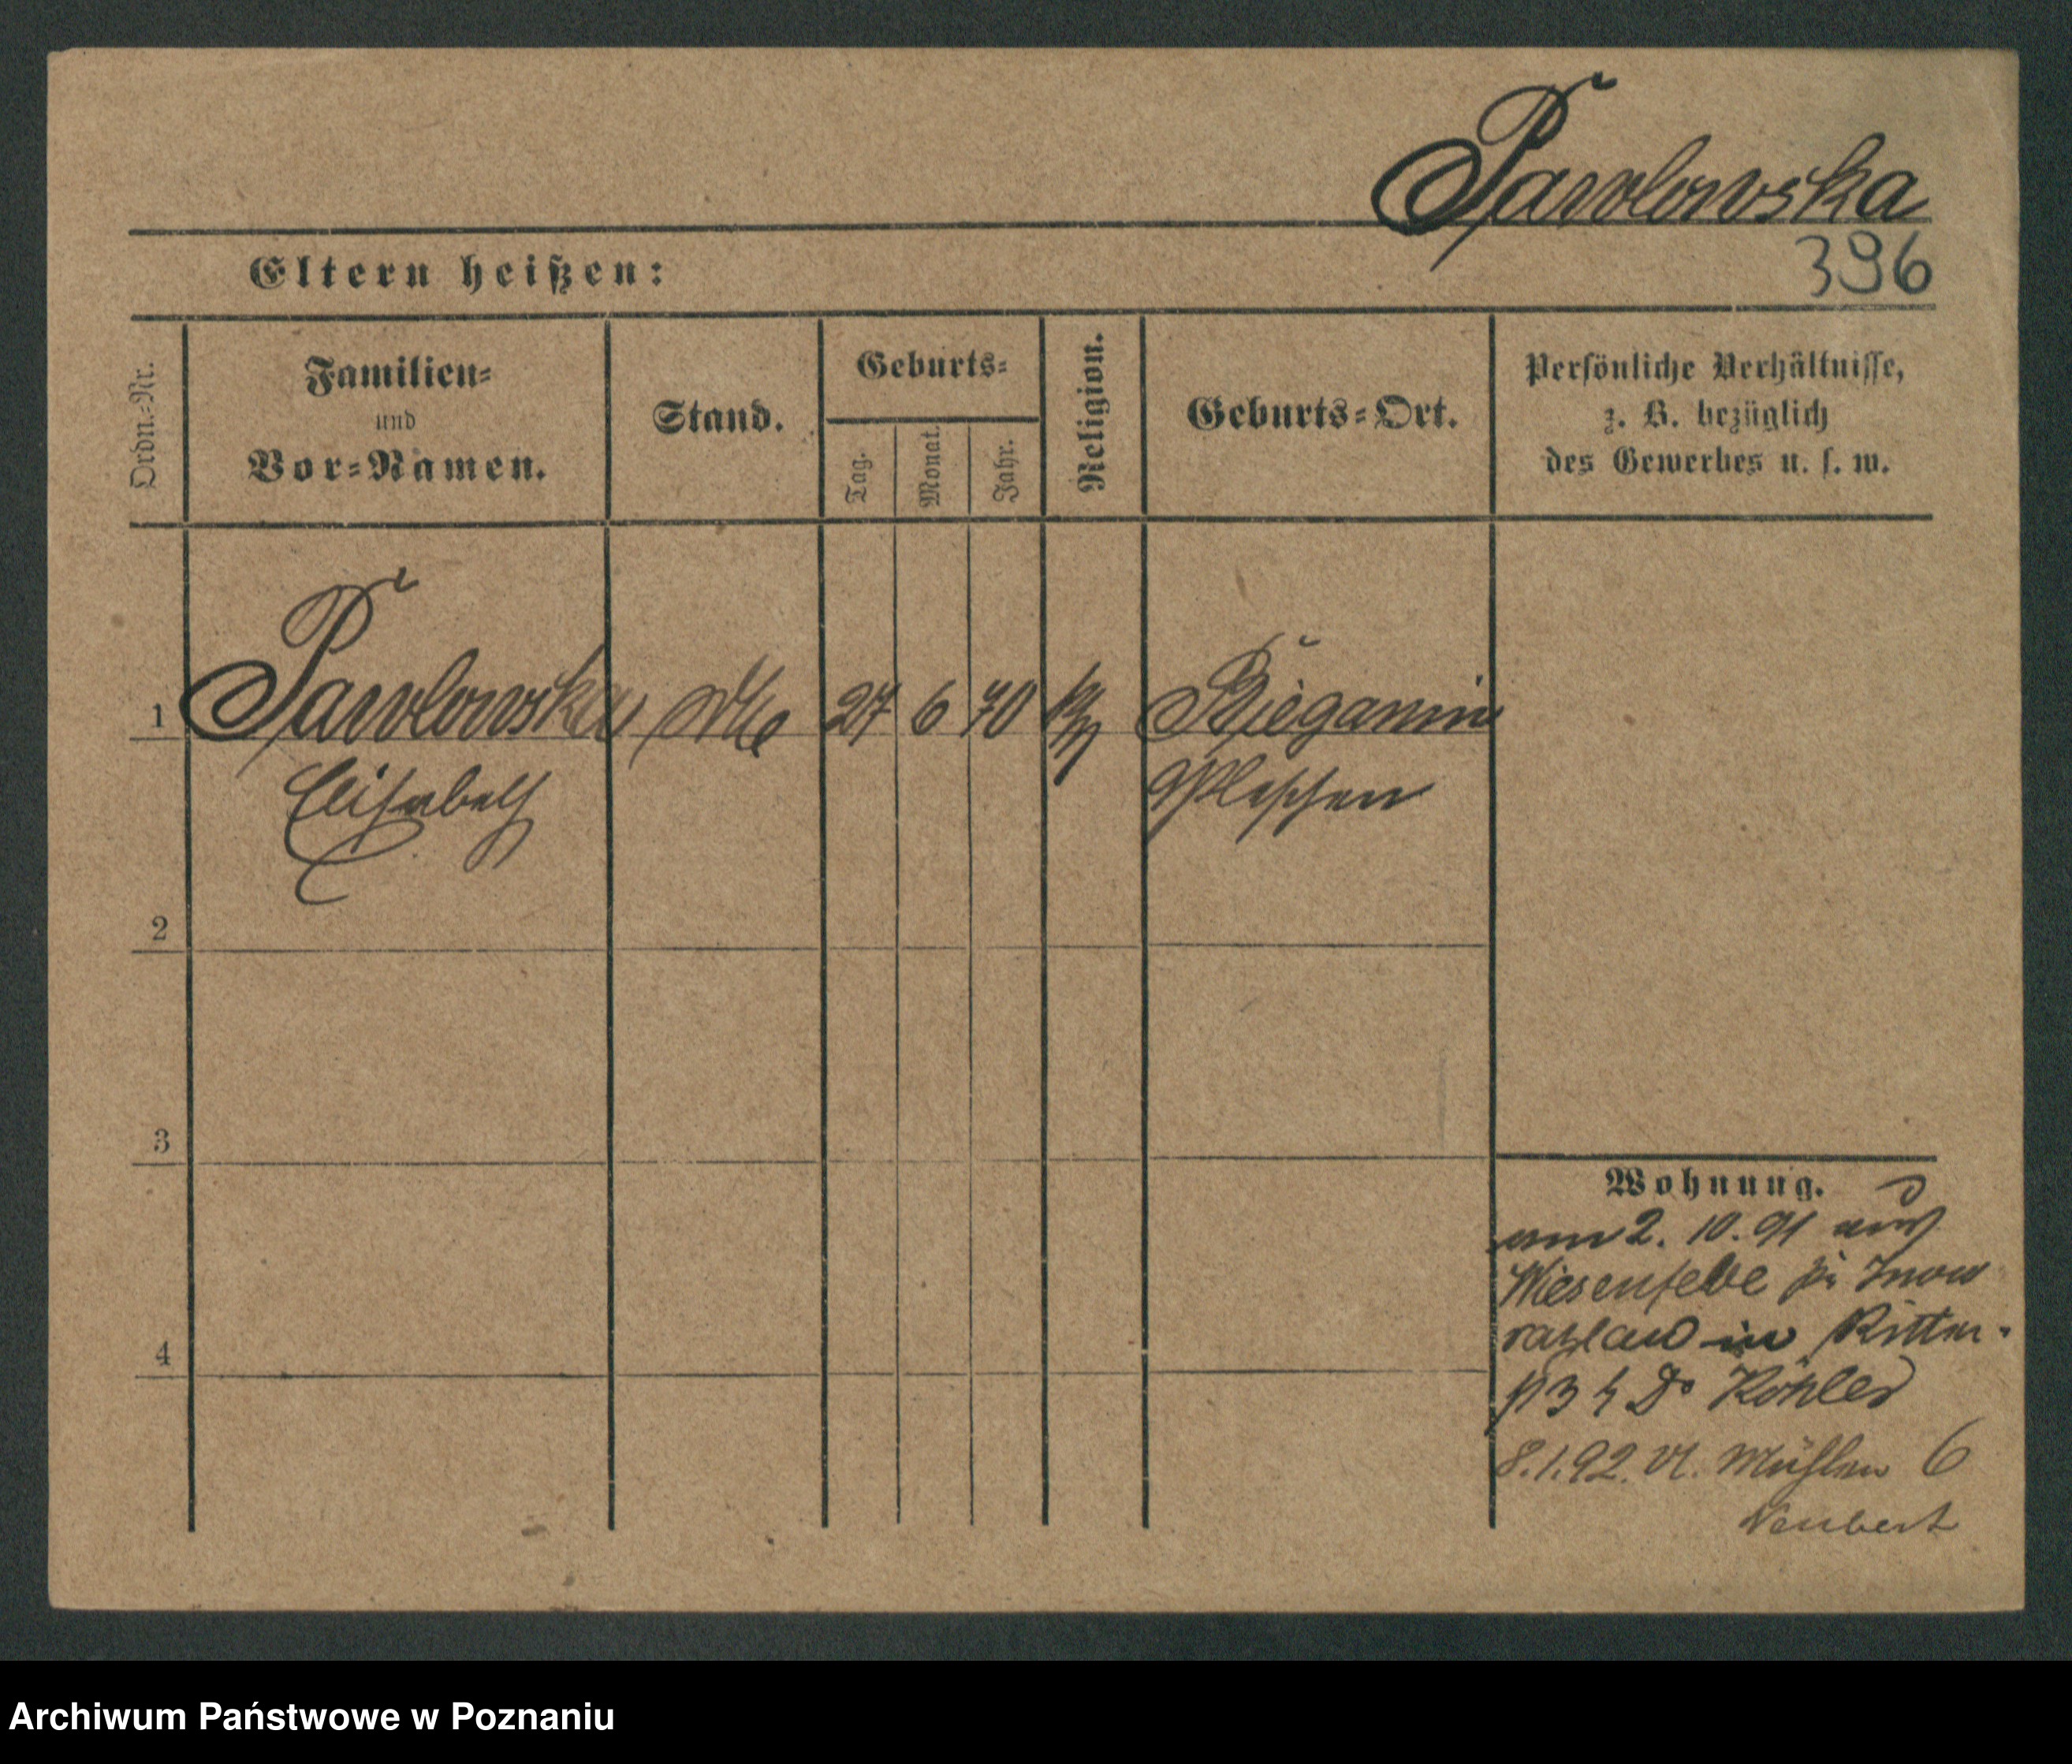 Pawlowska
396
Eltern heißen:
Ordn.-Nr.
Familien-
und
Vor-Namen.
Stand.
Geburts-
Tag.
Monat.
Jahr.
Religion.
Geburts-Ort.
Persönliche Verhältnisse,
z. B. bezüglich
des Gewerbes u. s. w.
1 Pawlowska 27 6 70 Bieganin
Elisabeth Pleschen
2
3
4
Wohnung.
2. 10. 91 aus
Wiesenfelde Inow
razlaw in Ritter-
3 Dr Köhler
8.1.92. Mühlen 6
Neubert
Archiwum Państwowe w Poznaniu